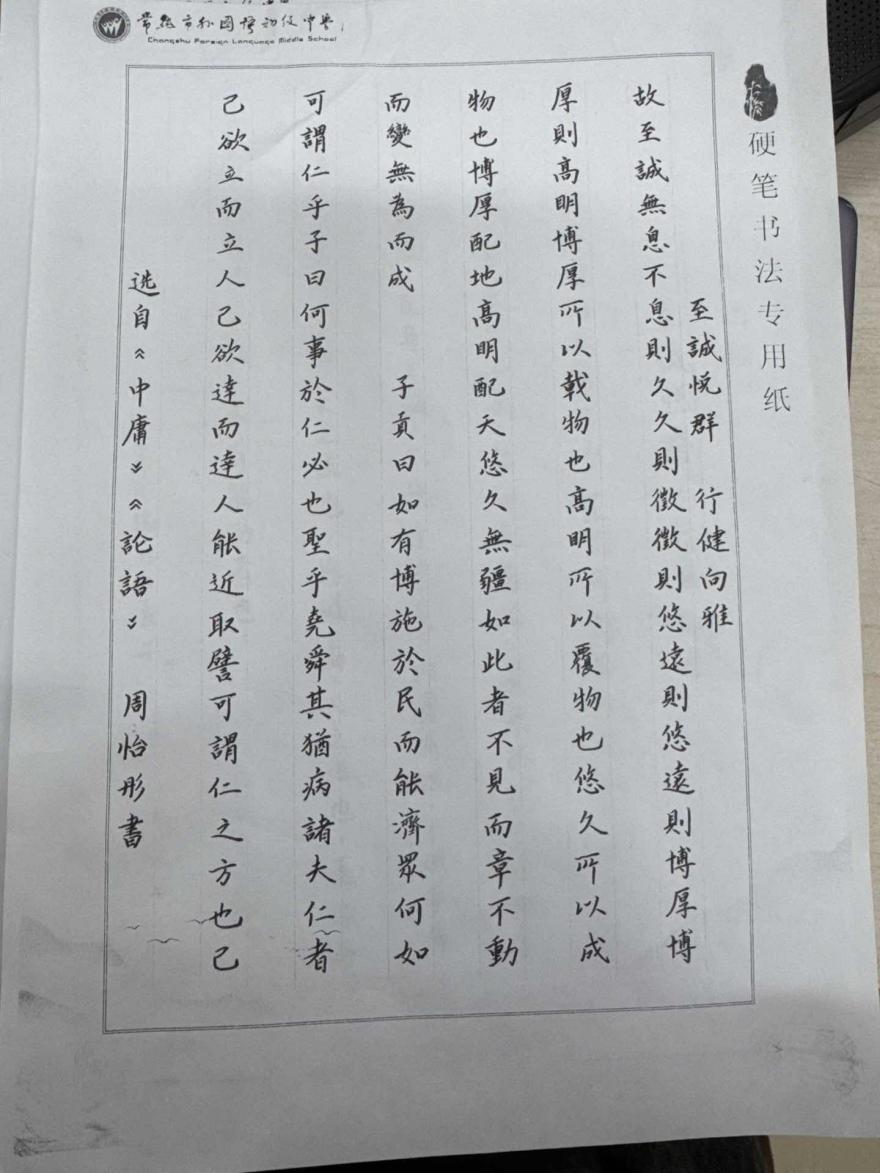 常熟市外国语初级中学
Changshu Foreign Language Middle School
硬笔书法专用纸
至誠悦群 行健向雅
故至誠無息不息則久久則徵徵則悠遠則悠遠則博厚博
厚則高明博厚所以載物也高明所以覆物也悠久所以成
物也博厚配地高明配天悠久無疆如此者不見而章不動
而變無為而成 子貢曰如有博施於民而能濟眾何如
可謂仁乎子曰何事於仁必也聖乎堯舜其猶病諸夫仁者
己欲立而立人己欲達而達人能近取譬可謂仁之方也已
选自《中庸》《論語》 周怡彤書